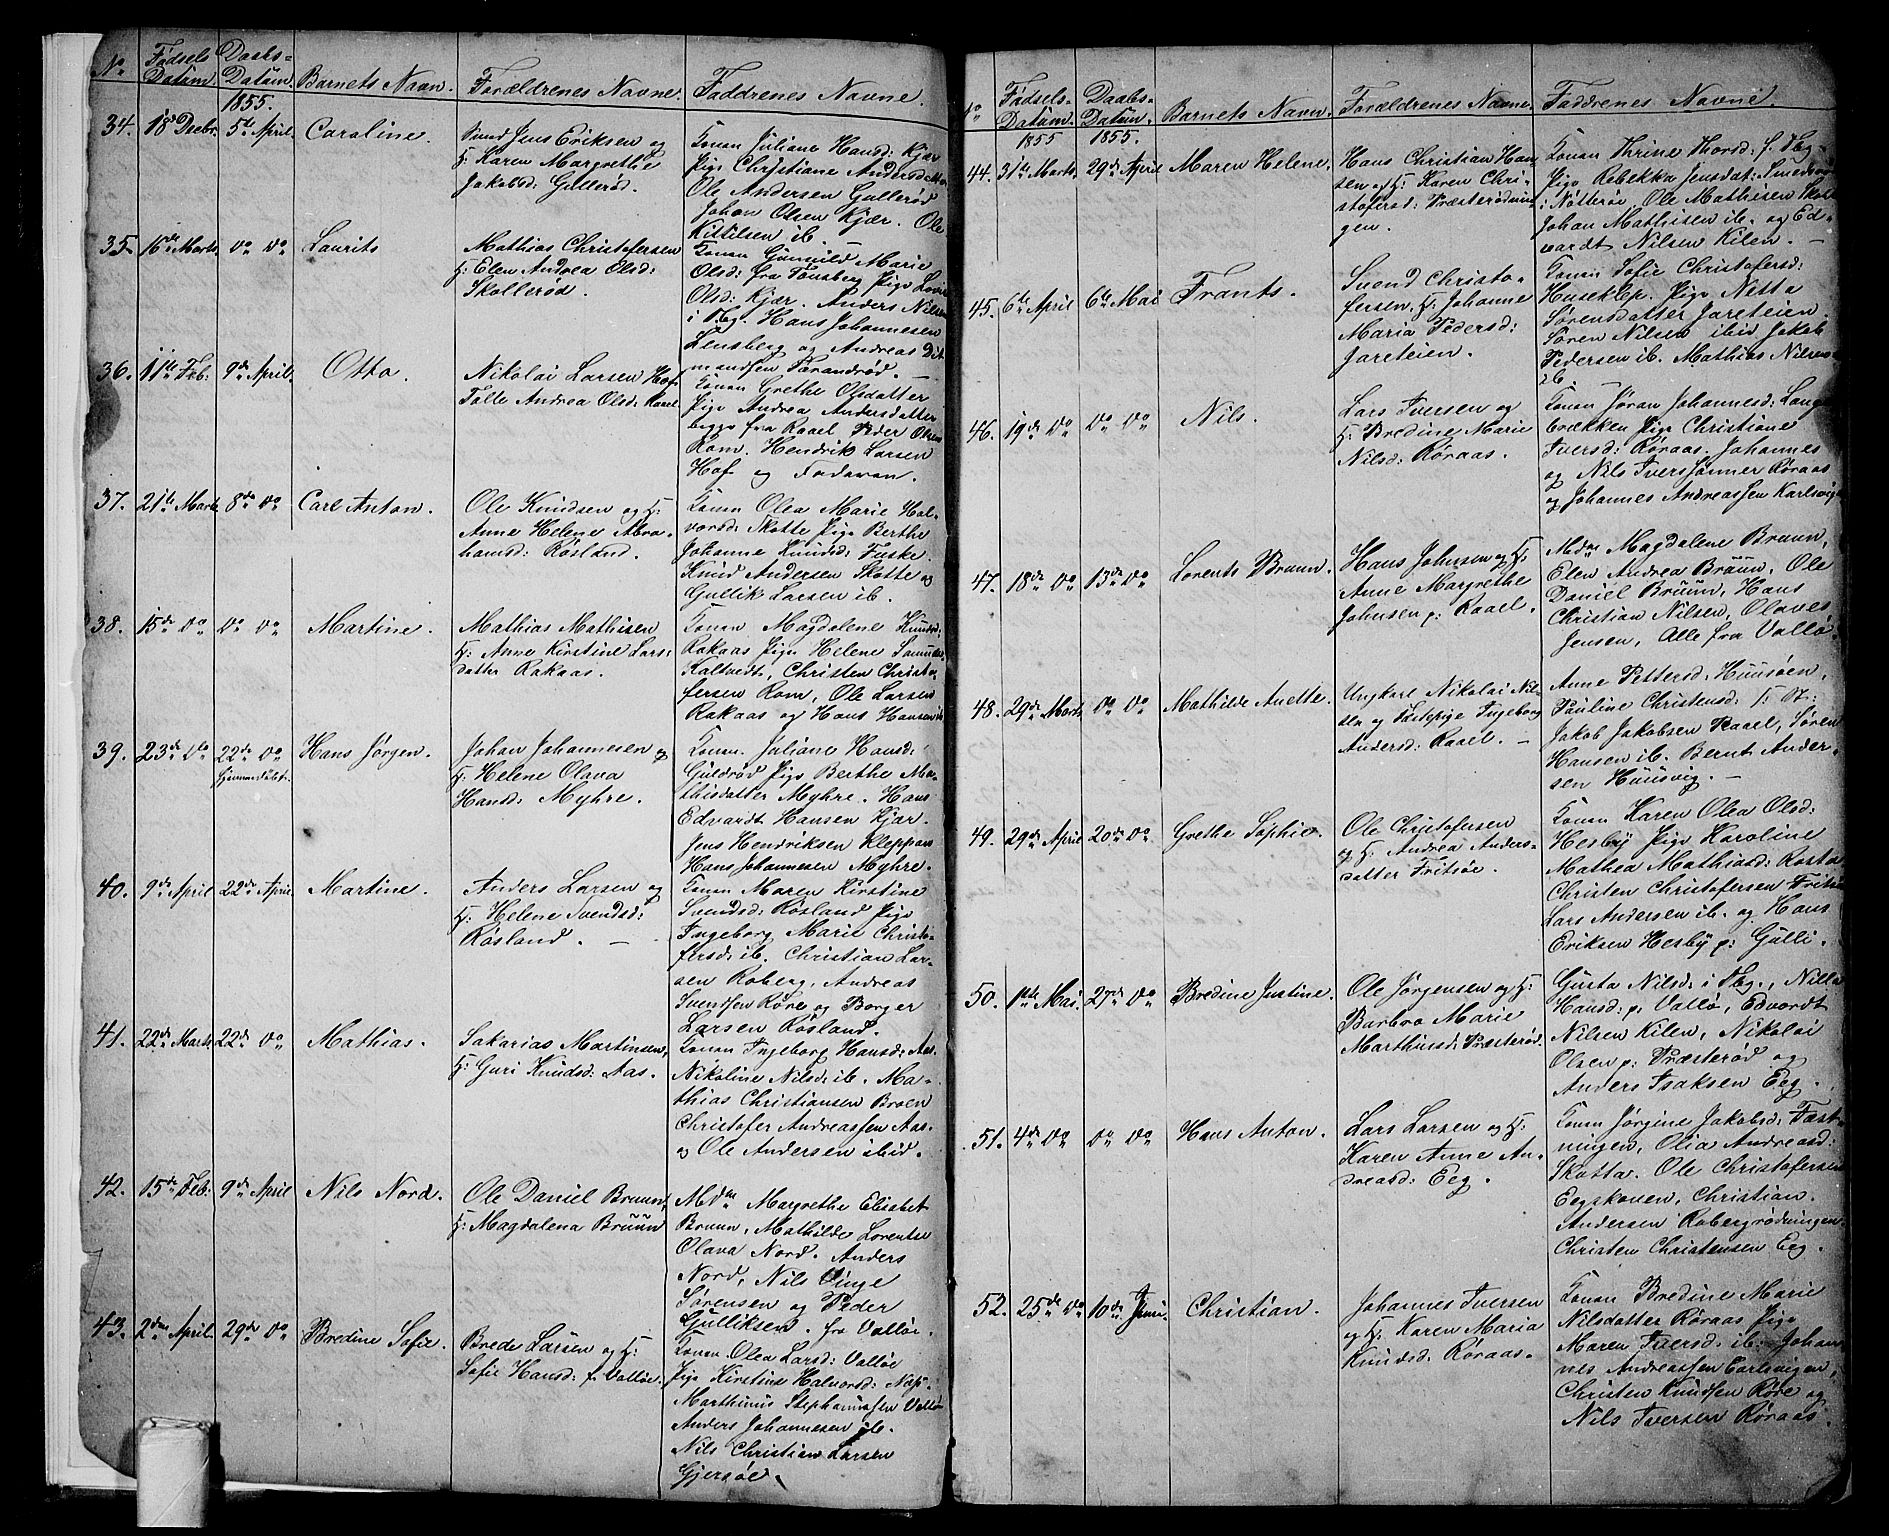 No. Fødsels Datum. Daabs= Datum. Barnets Navn. Forældrenes Navne. Faddrenes Navne.
1855.
34. 18d Decbr. 5te April. Caroline. Svend Jens Eriksen og
H: Karen Margrethe
Jakobsd: Gullerød.
Konen Juliane Hansd: Kjær
Pige Christiane Andersd
Ole Andersen Gullerød
Johan Olsen Kjær. Ole
Kittilsen ib.
35. 16de Marts. do do Laurits Mathias Christofersen
H: Elen Andrea Olsd:
Skollerød.
Konen Gunnild Marie
Olsd: fra Tønsberg Pige
Olsd: Kjær. Anders Nilsen
i Tbg. Hans Johannesen
Lensberg og Andreas Dit
mandsen Farandrød.
36. 11te Feb: 9de April. Otto. Nikolai Larsen Hof
Tolte Andrea Olsd: Raael
Konen Grethe Olsdatter
Pige Andrea Andersdatter
begge fra Raael Peder Olsen
Rom. Hendrik Larsen
Hof og Faderen.
37. 21te Marts 8de do Carl Anton. Ole Knudsen og H:
Anne Helene Abra=
hamsd: Røsland.
Konen Olea Marie Hal=
vorsd: Skotte Pige Berthe
Johanne Knudsd: Fuske
Knud Andersen Skotte og
Gullik Larsen ib.
38. 15de do do do Martine. Mathias Mathisen
H: Anne Kirstine Lars=
datter Rakaas.
Konen Magdalene Knudsd:
Rakaas Pige Helene Samuelsd:
Kaltvedt, Christen Christo=
fersen Rom, Ole Larsen
Rakaas og Hans Hansen ib
39. 23de do 22de do Hans Jørgen. Johan Johannesen og
Hjemmedøbt.
H: Helene Olava
Hansd: Myhre.
Konen Juliane Hansd:
Guldrød Pige Berthe Ma=
thisdatter Myhre. Hans
Edvardt Hansen Kjær.
Jens Hendriksen Kleppan
Hans Johannesen Myhre.
40. 9de April 22de April Martine. Anders Larsen og
H: Helene Svendsd:
Røsland.
Konen Maren Kirstine
Svendsd: Røsland Pige
Ingeborg Marie Christo=
fersd: ib. Christian Lar=
sen Roberg, Andreas
Svendsen Røre og Borger
Larsen Røsland.
41. 22de Marts 22de do Mathias. Sakarias Martinsen,
H: Guri Knudsd: Aas.
Konen Ingeborg Hansd: Aas.
Nikoline Nilsd: ib. Ma=
thias Christiansen Broen
Christofer Andreassen Aas.
og Ole Andersen ibid.
42. 15de Feb: 9de April Nils Nord. Ole Daniel Bruun,
H: Magdalena Bruun
Mdm Margrethe Elisabet
Bruun, Mathilde Lorentse
Olava Nord. Anders
Nord, Nils Vinge
Sørensen og Peder
Gulliksen. fra Valløe.
43. 2den April. 29de do Bredine Sofie. Brede Larsen og H:
Sofie Hansd: p. Valløe.
Konen Olea Larsd: Valløe
Pige Kirstine Halvorsd: Næs.
Marthinus Stephannsen Valløe
Anders Johannesen ib.
Nils Christian Larsen
Gjersøe.
No Fødsels= Datum. Daabs= Datum. Barnets Navn. Forældrenes Navne. Faddrenes Navne.
1855 1855.
44. 31te Marts. 29de April Maren Helene. Hans Christian Han=
sen og H: Karen Chri=
stofersd: Præsterødnin
gen.
Konen Thrine Thorsd: f. Tbg=
Pige Rebekka Jensdat:
i Nøtterøe. Ole Mathisen
Johan Mathisen ib. og Ed=
vardt Nilsen Kilen.
45. 6te April 6te Mai Frants. Svend Christo=
fersen, H: Johanne
Maria Pedersd:
Jareteien.
Konen Sofie Christofersd:
Huseklep. Pige Netta
Sørensdatter Jareteien.
Søren Nilsen ibid Jakob
Pedersen ib. Mathias Nilsen
ib
46. 19de do do do Nils. Lars Iversen og
H: Bredine Marie
Nilsd: Røraas.
Konen Jøran Johannesd: Lange
brækken Pige Christiane
Iversd: Røraas. Johannes
og Nils Iverssønner Røraas
og Johannes Andreassen Karlsvig
47. 18de do 13de do Lorents Bruun. Hans Johnsen og H:
Anne Margrethe
Johnsen p: Raael.
Mdm Magdalene Bruun,
Elen Andrea Bruun, Ole
Daniel Bruun, Hans
Christian Nilsen, Olaves
Jensen, Alle fra Valløe
48. 29de Marts. do do Mathilde Anette. Ungkarl Nikolai Nil=
sen og Festepige Ingeborg
Andersd: Raael.
Anne Pettersd: Huusøen,
Pauline Christensd:
Jakob Jakobsen Raael, Søren
Hansen ib. Bernt Ander=
sen Huusvig.
49. 29de April 20de do Grethe Sophie. Ole Christofersen
og H: Andrea Anders=
datter Fritsøe.
Konen Karen Olea Olsd:
Hesby Pige Karoline
Mathea Mathiasd: Rosta
Christen Christofersen Fritsøe
Lars Andersen ib. og Hans
Eriksen Hesby p: Gulli.
50. 1ste Mai. 27de do Bredine Justine. Ole Jørgensen og H:
Barbro Marie
Marthinsd: Præsterød.
Gusta Nilsd: i Tbg., Nilla
Hansd: p. Valløe, Edvardt
Nilsen Kilen, Nikolai
Olsen p: Præsterød og
Anders Isaksen Eeg.
51. 4de do do do Hans Anton. Lars Larsen og H:
Karen Anne An=
dreasd: Eeg.
Konen Jørgine Jakobsd: Fæst=
ningen, Olia Andreasd:
Skotta. Ole Christofersen
Eegskoven, Christian.
Andersen Robergrødningen
Christen Christensen Eeg.
52. 25de do 10de Juni. Christian. Johannes Iversen
og H: Karen Maria
Knudsd: Røraas.
Konen Bredine Marie
Nilsdatter Røraas Pige
Maren Iversd: ib: Johan
nes Andreassen Carlsvigen,
Christen Knudsen Røre og
Nils Iversen Røraas.